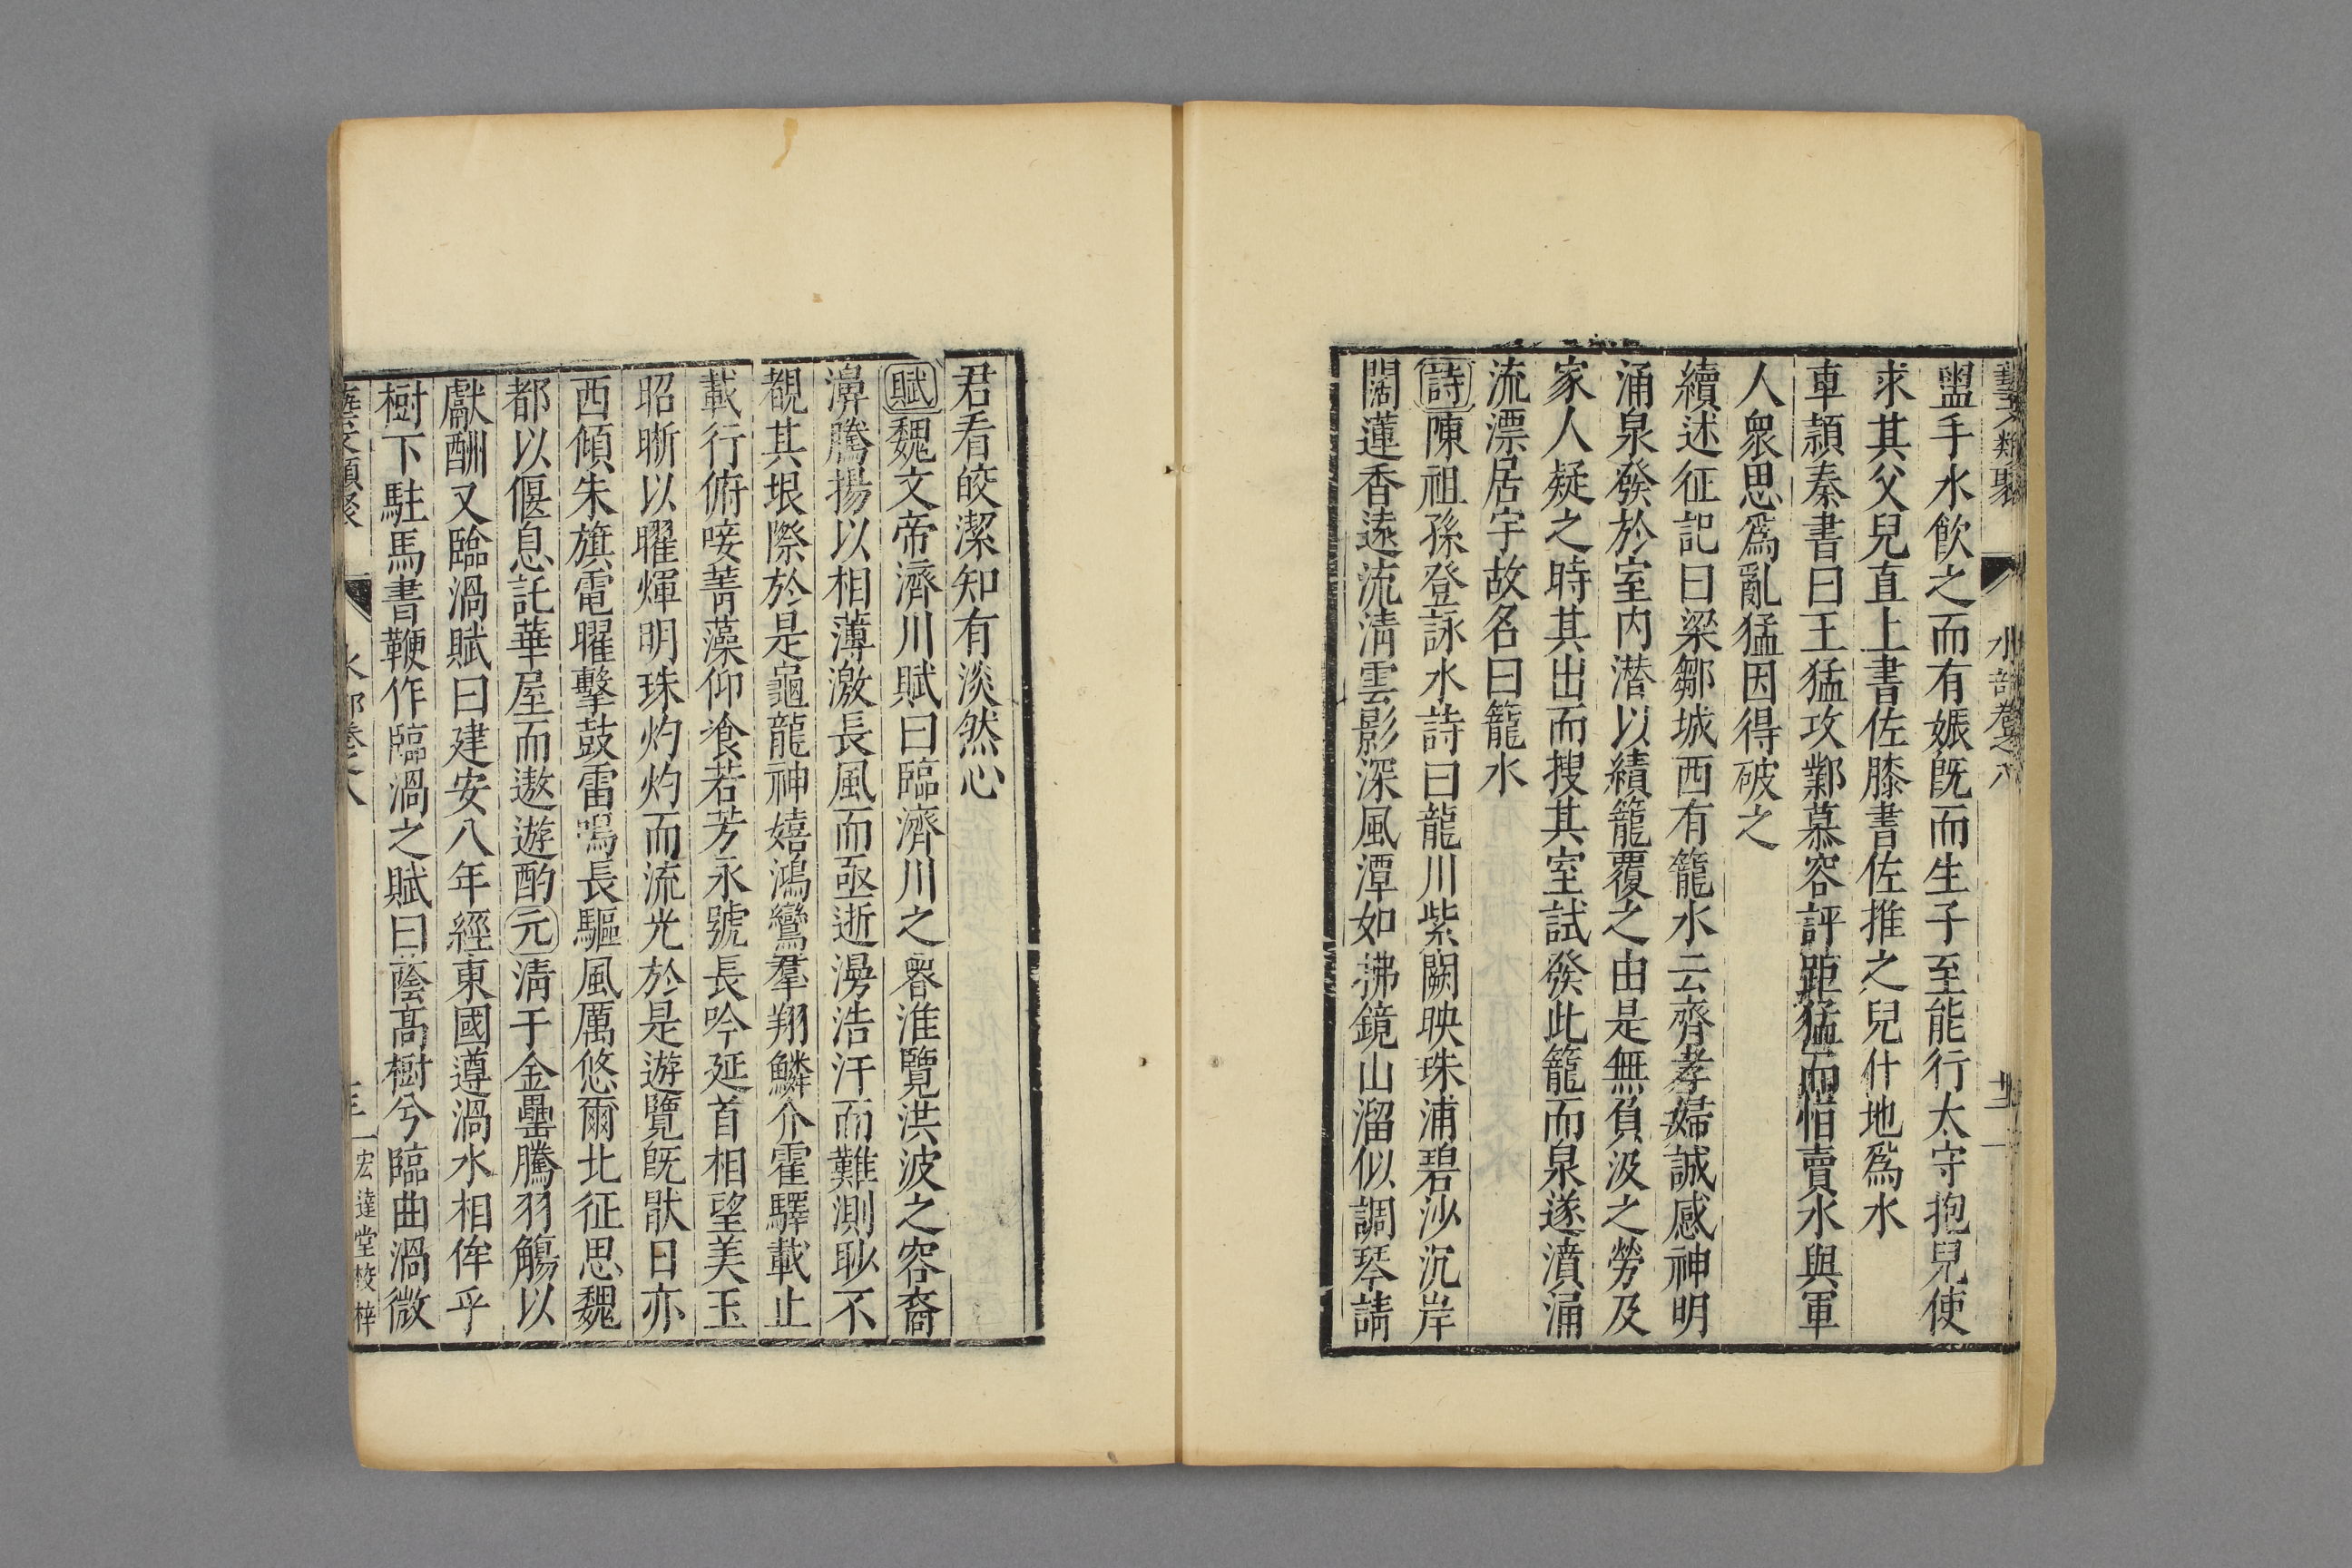 藝文類聚 水部卷之八 廿二
盥手水飲之而有娠旣而生子至能行太守抱兒使
求其父兒直上書佐膝書佐推之兒仆地爲水
車頴秦書曰王猛攻鄴慕容評距猛而怕賣水與軍
人衆思爲亂猛因得破之
續述征記曰梁鄒城西有籠水云齊孝婦誠感神明
涌泉發於室内潛以績籠覆之由是無負汲之勞及
家人疑之時其出而搜其室試發此籠而泉遂濆涌
流漂居宇故名曰籠水
詩陳祖孫登詠水詩曰龍川紫闕映珠浦碧沙沉岸
闊蓮香遠流淸雲影深風潭如拂鏡山溜似調琴請
君看皎潔知有淡然心
賦魏文帝濟川賦曰臨濟川之層淮覽洪波之容裔
濞騰揚以相薄激長風而亟逝漫浩汗而難測眇不
覩其垠際於是龜龍神嬉鴻鸞羣翔鱗介霍驛載止
載行俯唼菁藻仰飡若芳永號長吟延首相望美玉
昭晣以曜煇明珠灼灼而流光於是遊覽旣猒日亦
西傾朱旗電曜擊鼓雷鳴長驅風厲悠爾北征思魏
都以偃息託華屋而遨遊酌元淸于金罍騰羽觴以
獻酬又臨渦賦曰建安八年經東國遵渦水相侔乎
樹下駐馬書鞭作臨渦之賦曰蔭高樹兮臨曲渦微
藝文類聚 水部卷之八 宏達堂校梓